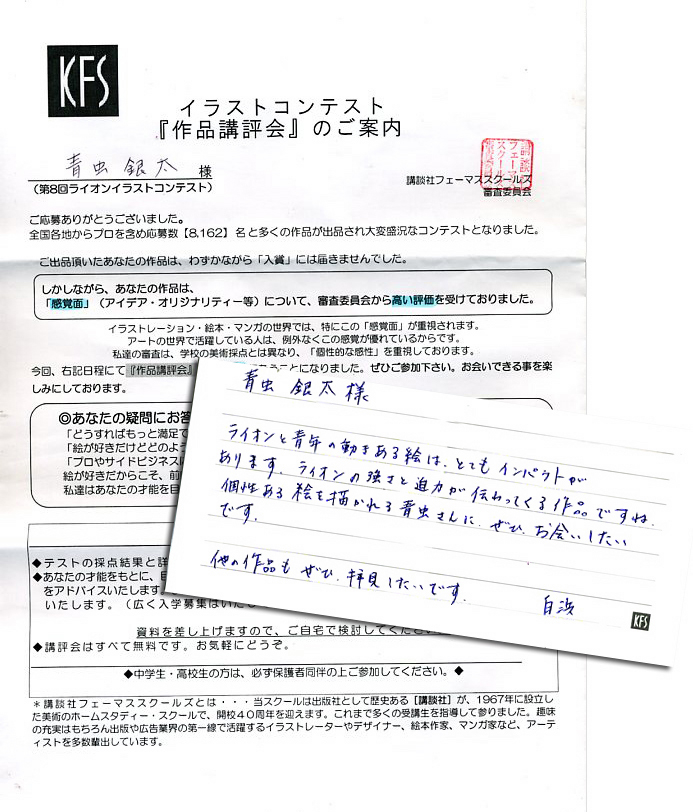 KFS
イラストコンテスト
『作品講評会』のご案内
青虫 銀太 様
(第8回ライオンイラストコンテスト)
講談社フェーマススクールズ
審査委員会
ご応募ありがとうございました。
全国各地からプロを含め応募数【8,162】名と多くの作品が出品され大変盛況なコンテストとなりました。
ご出品頂いたあなたの作品は、わずかながら「入賞」には届きませんでした。
しかしながら、あなたの作品は、
「感覚面」(アイデア・オリジナリティー等)について、審査委員会から高い評価を受けておりました。
イラストレーション・絵本・マンガの世界では、特にこの「感覚面」が重視されます。
アートの世界で活躍している人は、例外なくこの感覚が優れているからです。
私達の審査は、学校の美術採点とは異なり、「個性的な感性」を重視しております。
今回、右記日程にて『作品講評会』
ことになりました。ぜひご参加下さい。お会いできる事を楽
しみにしております。
◎あなたの疑問にお答
「どうすればもっと満足で
「絵が好きだけどどのよう
「プロやサイドビジネスに
絵が好きだからこそ、前
私達はあなたの才能を目
◆テストの採点結果と詳
◆あなたの才能をもとに、目
をアドバイスいたします
いたします。(広く入学募集はいたし
資料を差し上げますので、ご自宅で検討してくださ
◆講評会はすべて無料です。お気軽にどうぞ。
◆中学生・高校生の方は、必ず保護者同伴の上ご参加してください。◆
*講談社フェーマススクールズとは・・・当スクールは出版社として歴史ある【講談社】が、1967年に設立し
た美術のホームスタディー・スクールで、開校40周年を迎えます。これまで多くの受講生を指導して参りました。趣味
の充実はもちろん出版や広告業界の第一線で活躍するイラストレーターやデザイナー、絵本作家、マンガ家など、アーテ
ィストを多数輩出しています。
青虫 銀太 様
ライオンと青年の動きある絵は、とてもインパクトが
あります。ライオンの強さと迫力が伝わってくる作品ですね。
個性ある絵を描かれる青虫さんに、ぜひ、お会いしたい
です。
他の作品もぜひ、拝見したいです。
白浜
KFS